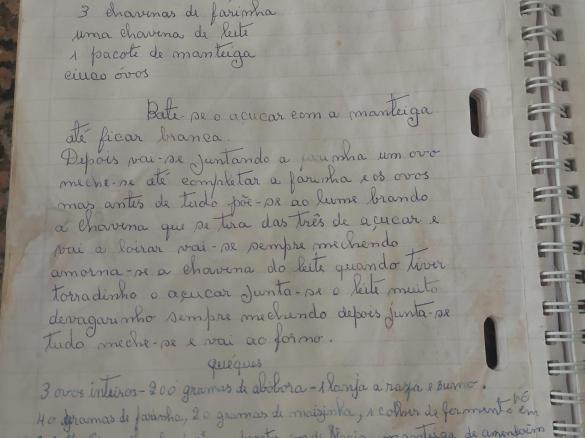 3 chavenas de farinha
uma chavena de leite
1 pacote de manteiga
cinco óvos
Bate-se o açucar com a manteiga
até ficar branca.
Depois vai-se juntando a farinha um ovo
meche-se até completar a farinha e os ovos
mas antes de tudo põe-se ao lume brando
a chavena que se tira das três de açucar e
vai a loirar vai-se sempre mechendo
amorna-se a chavena do leite quando tiver
torradinho o açucar junta-se o leite muito
devagarinho sempre mechendo depois junta-se
tudo meche-se e vai ao forno.
Quéques
3 ovos inteiros-200 gramas de abobora-1 lanja a raspa e sumo.
40 gramas de farinha, 20 gramas de maizinha, 1 colher de fermento em pó
manteiga de amendoim